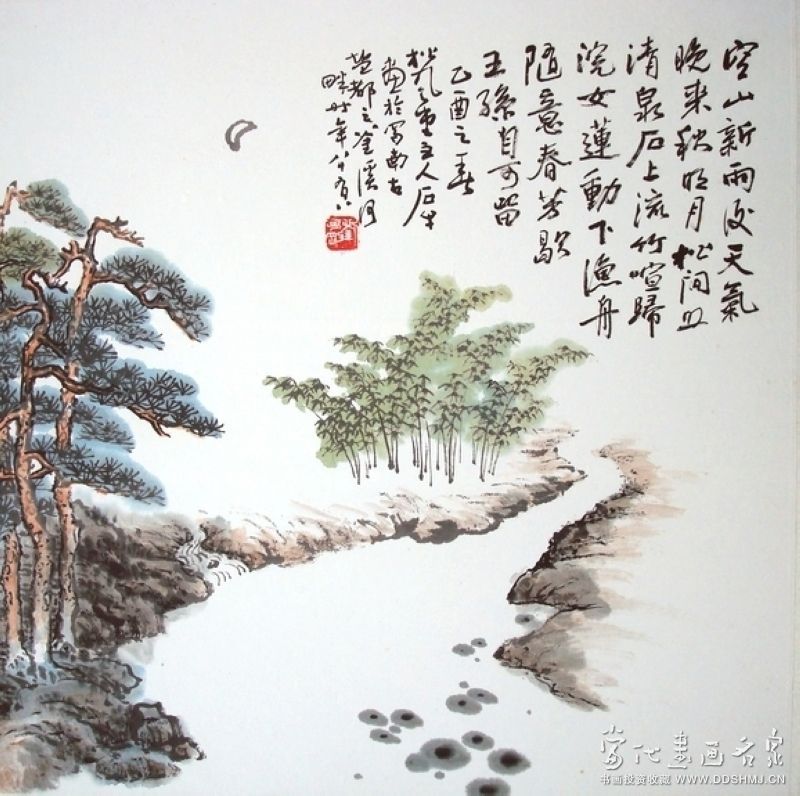 空山新雨後天氣
晚来秋明月松间照
清泉石上流竹喧歸
浣女蓮動下漁舟
隨意春芳歇
王孫自可留
乙酉之春
主人石
於 南古
都之金溪河
畔 年八
當代書画名家
书画投资收藏 WWW.DDSHMJ.CN